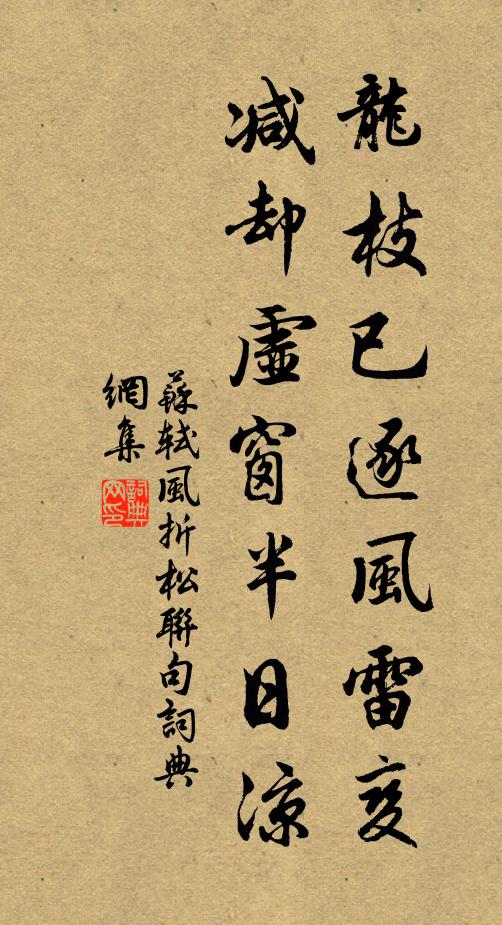 龍枝已逐風雷変
減却虛窗半日凉
蘇軾風折松聯句詞典
網集
詞典
网印